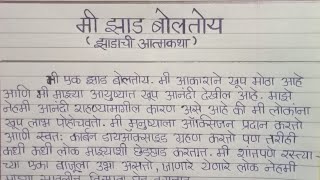 मी झाड बोलतोय
( झाडाची आत्मकथा )
मी एक झाड बोलतोय. मी आकाराने खूप मोठा आहे
आणि मी माझ्या आयुष्यात खूप आनंदी देखील आहे. माझे
नेहमी आनंदी राहण्यामागील कारण असे आहे की मी लोकांना
खूप लाभ पोहचवतो. मी मनुष्याला ऑक्सिजन प्रदान करतो
आणि स्वतः कार्बन डायऑक्साइड ग्रहण करतो पण तरीही
कधी कधी लोक माझ्याशी छेडछाड करतात. मी शांतपणे रस्त्या-
च्या एका बाजूला उभा असतो, जाणारे येणारे लोक नेहमी